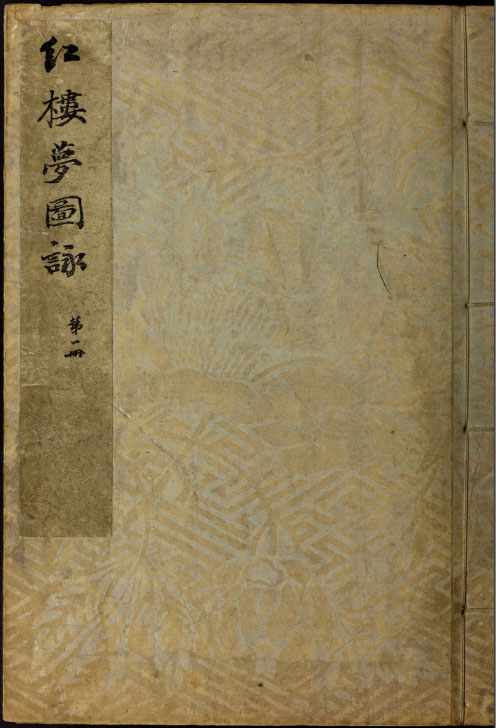 红樓夢圖詠
第一冊